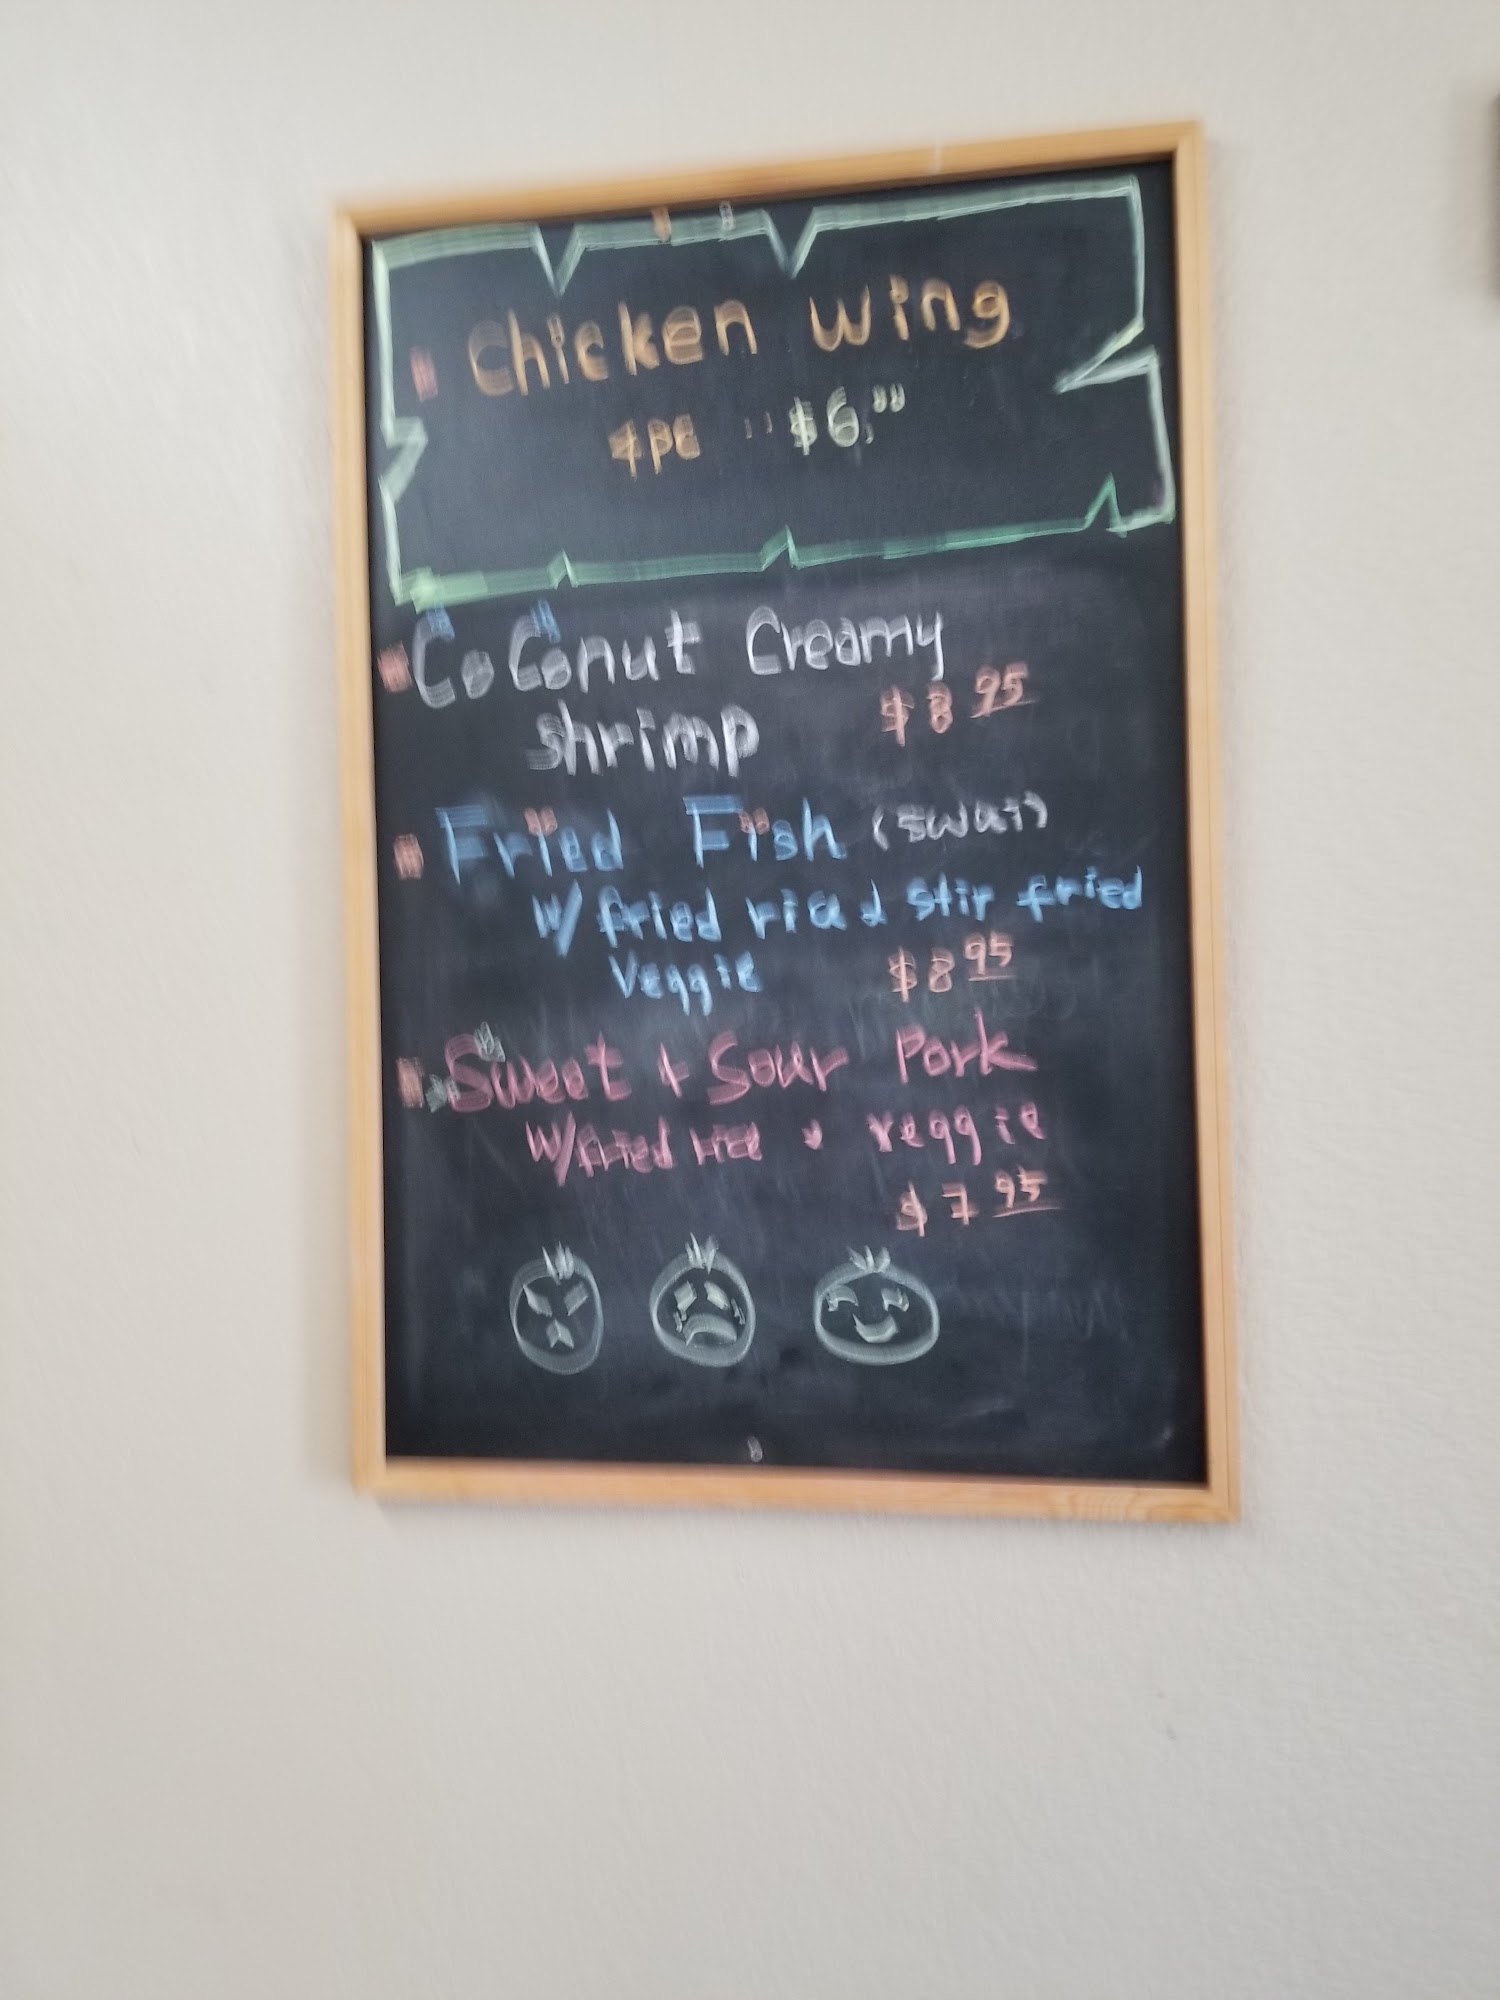 Chicken wing
4pc $6.00
Coconut Creamy
shrimp $8.95
Fried Fish (swai)
w/ fried rice & stir fried
Veggie $8.95
Sweet + Sour Pork
w/ fried rice + veggie
$7.95